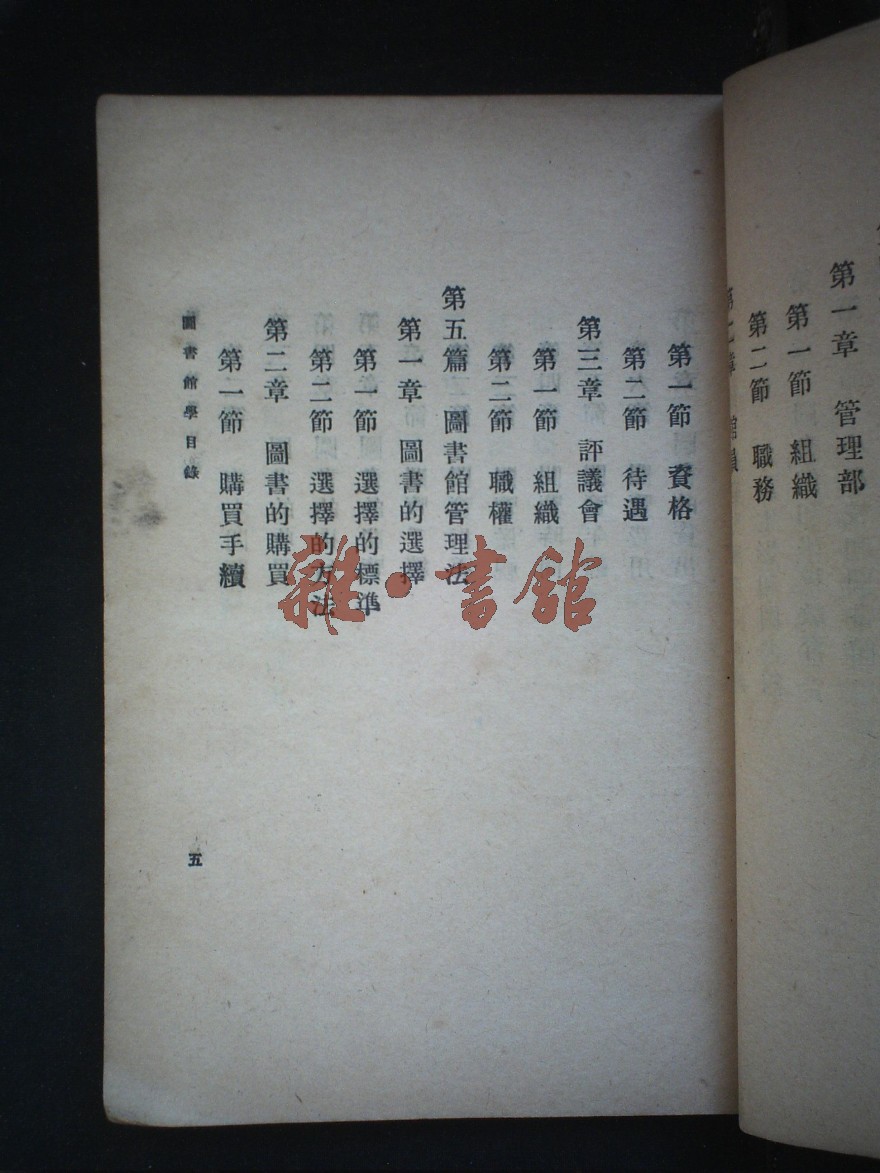 第一章　管理部
第一節　組織
第二節　職務
第二章　館員
第一節　資格
第二節　待遇
第三章　評議會
第一節　組織
第二節　職權
第五篇　圖書館管理法
第一章　圖書的選擇
第一節　選擇的標準
第二節　選擇的方法
第二章　圖書的購買
第一節　購買手續
圖書館學目錄
五
雜·書館